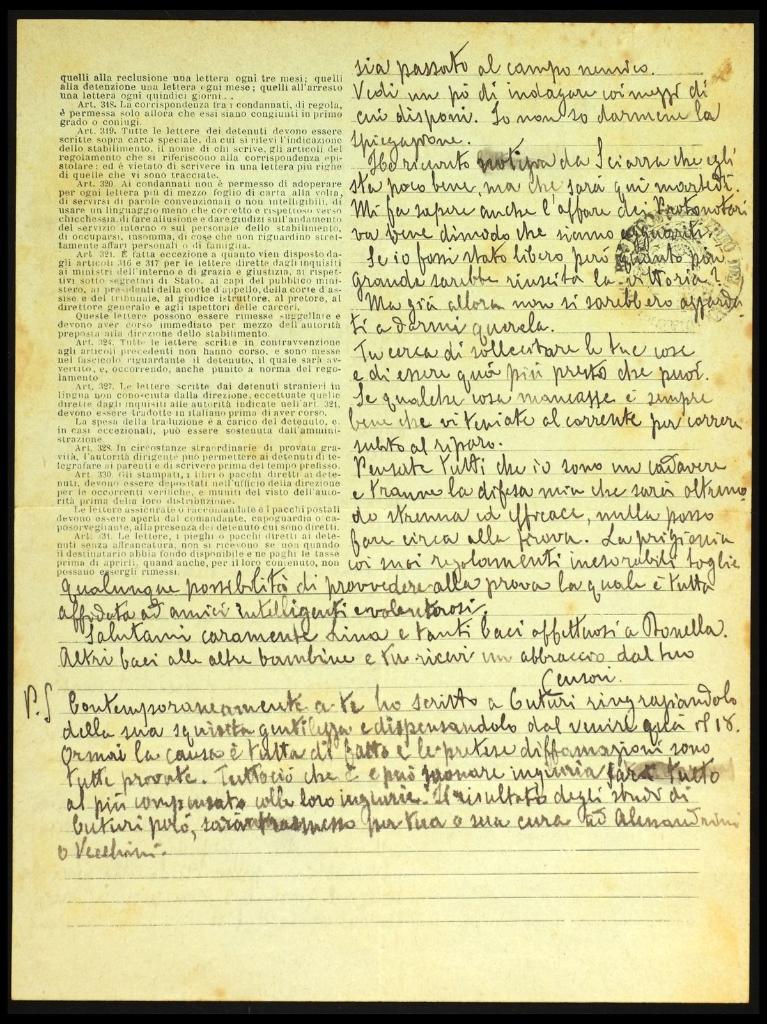 quelli alla reclusione una lettera ogni tre mesi; quelli
alla detenzione una lettera ogni mese; quelli all'arresto
una lettera ogni quindici giorni...
Art. 318. La corrispondenza fra i condannati, di regola,
è permessa solo allora che essi siano congiunti in primo
grado o coniugi.
Art. 319. Tutte le lettere dei detenuti devono essere
scritte sopra carta speciale, da cui si rilevi l'indicazione
dello stabilimento, il nome di chi scrive, gli articoli del
regolamento che si riferiscono alla corrispondenza epi-
stolare; ed è vietato di scrivere in una lettera più righe
di quelle che vi sono tracciate.
Art. 320. Ai condannati non è permesso di adoperare
per ogni lettera più di mezzo foglio di carta alla volta,
di servirsi di parole convenzionali o non intelligibili, di
usare un linguaggio men che corretto e rispettoso verso
chicchessia, di fare allusione e dare giudizi sull'andamento
del servizio interno o sul personale dello stabilimento,
di occuparsi, insomma, di cose che non riguardino stret-
tamente affari personali o di famiglia.
Art. 321. È fatta eccezione a quanto vien disposto da-
gli articoli 316 e 317 per le lettere dirette dagli inquisiti
ai ministri dell'interno e di grazia e giustizia, ai rispet-
tivi sotto segretari di Stato, ai capi del pubblico mini-
stero, ai presidenti della corte d'appello, della corte d'as-
sise e del tribunale, al giudice istruttore, al pretore, al
direttore generale e agli ispettori delle carceri.
Queste lettere possono essere rimesse suggellate e
devono aver corso immediato per mezzo dell'autorità
preposta alla direzione dello stabilimento.
Art. 324. Tutte le lettere scritte in contravvenzione
agli articoli precedenti non hanno corso, e sono messe
nel fascicolo riguardante il detenuto, il quale sarà av-
vertito, e, occorrendo, anche punito a norma del rego-
lamento
Art. 327. Le lettere scritte dai detenuti stranieri in
lingua non conosciuta dalla direzione, eccettuate quelle
dirette dagli inquisiti alle autorità indicate nell'art. 321,
devono essere tradotte in italiano prima di aver corso.
La spesa della traduzione è a carico del detenuto, e,
in casi eccezionali, può essere sostenuta dall'ammini-
strazione.
Art. 328. In circostanze straordinarie di provata gra-
vità, l'autorità dirigente può permettere ai detenuti di te-
legrafare ai parenti e di scrivere prima del tempo prefisso.
Art. 330. Gli stampati, i libri o pacchi diretti ai dete-
nuti, devono essere depositati nell'ufficio della direzione
per le occorrenti verifiche, e muniti del visto dell'auto-
rità prima della loro distribuzione.
Le lettere assicurate o raccomandate e i pacchi postali
devono essere aperti dal comandante, capoguardia o ca-
posorvegliante, alla presenza dei detenuto cui sono diretti.
Art. 331. Le lettere, i pieghi o pacchi diretti ai dete-
nuti senza affrancatura, non si ricevono se non quando
il destinatario abbia fondo disponibile e ne paghi le tasse
prima di aprirli, quand'anche, per il loro contenuto, non
possano essergli rimessi.
sia passato al campo nemico.
Vedi un pò di indagare coi mezzi di
cui disponi. Io non so darmene la
spiegazione.
Ho ricevuto notizia da Sciarra che egli
sta poco bene, ma che sarà qui martedì.
Mi fa sapere anche l'affare dei Protonotari
va bene di modo che siamo
Se io fossi stato libero però quanto più
grande sarebbe riuscita la vittoria?
Ma già allora non si sarebbero azzarda
ti a darmi querela.
Tu cerca di sollecitare le tue cose
e di essere quà più presto che puoi.
Se qualche cosa mancasse è sempre
bene che vi teniate al corrente per correre
subito al riparo.
Pensate tutti che io sono un cadavere
e tranne la difesa mia che sarà oltremo
do strenua ed efficace, nulla posso
fare circa alla prova. La prigionia
coi suoi regolamenti inesorabili toglie
qualunque possibilità di provvedere alla prova la quale è tutta
affidata ad amici intelligenti e volenterosi.
Salutami caramente Lina e tanti baci affettuosi a Donella.
Altri baci alle altre bambine e tu ricevi un abbraccio dal tuo
Censori.
P.S Contemporaneamente a te ho scritto a Cuturi ringraziandolo
della sua squisita gentilezza e dispensandolo dal venire quà il 18.
Ormai la causa è tutta di fatto e le pretese diffamazioni sono
tutte provate. Tuttociò che è e può suonare ingiuria sarà tutto
al più compensato colle loro ingiurie. Il risultato degli studi di
Cuturi però, sarà trasmesso per tua o sua cura ad Alessandrini
o Vecchini.